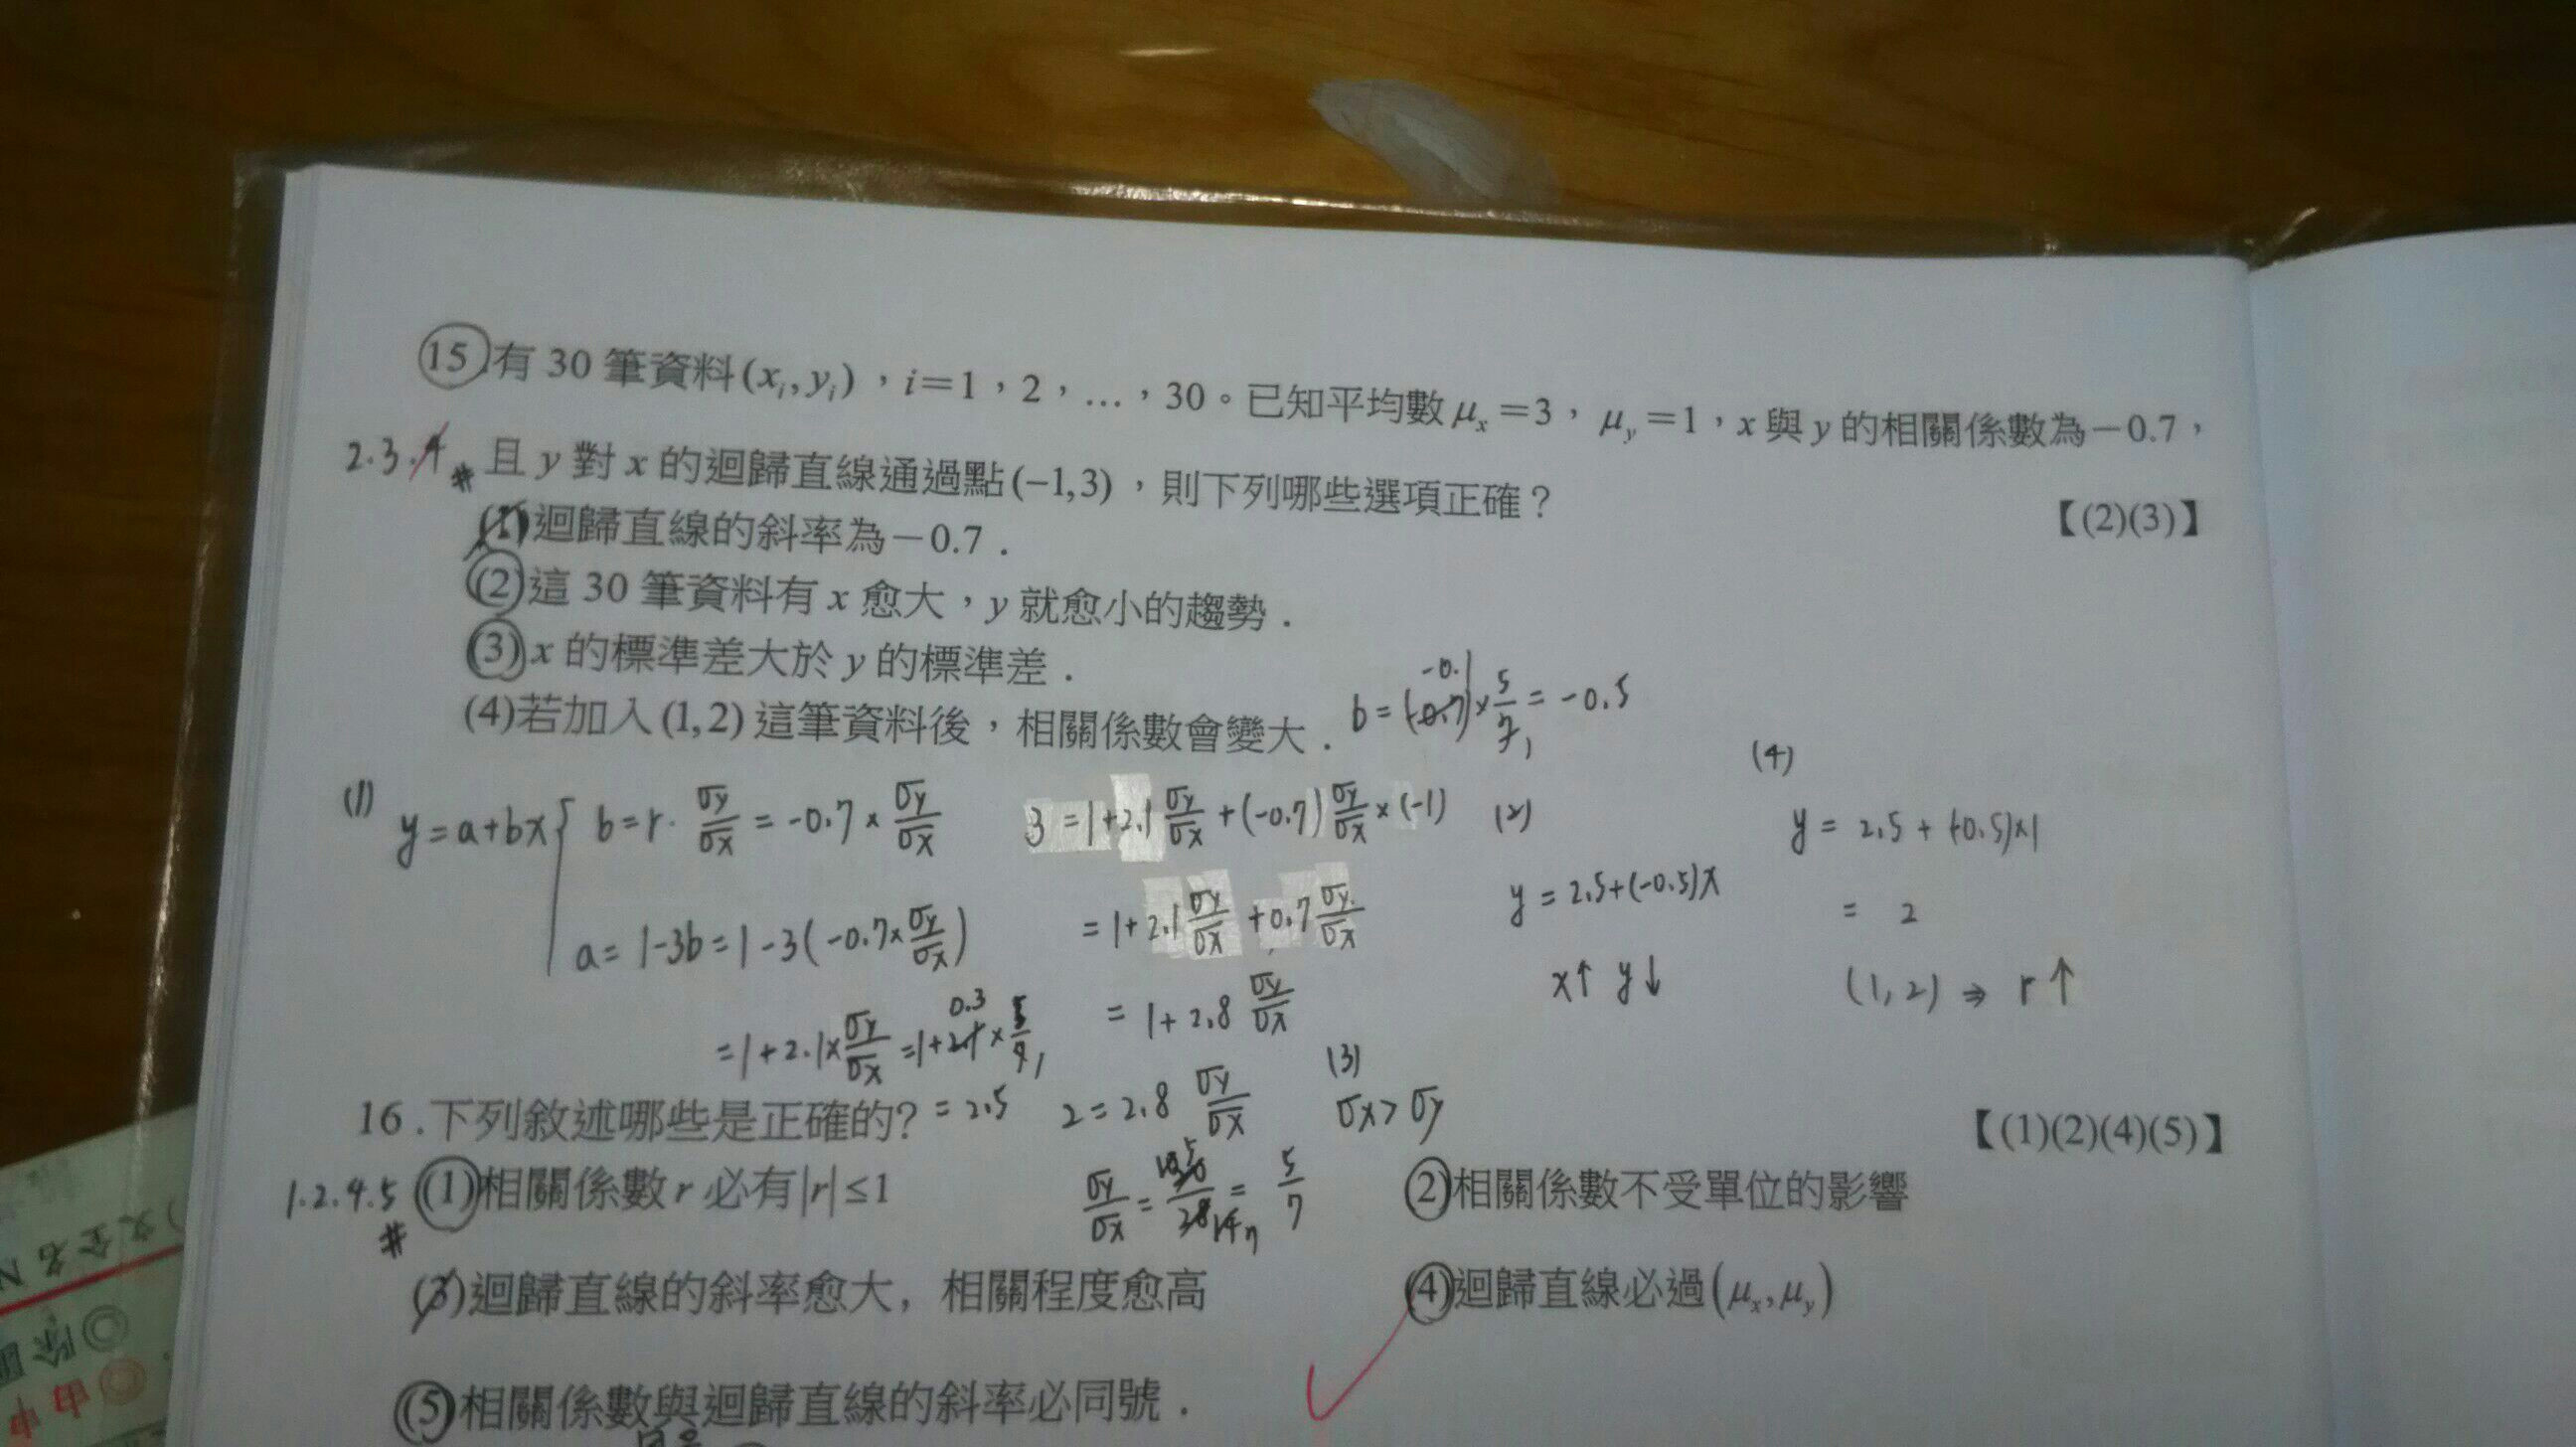 15.有 30 筆資料(xᵢ,yᵢ),i=1,2,…,30。已知平均數 μₓ=3,μᵧ=1,x 與 y 的相關係數為−0.7,
2.3.4 # 且 y 對 x 的迴歸直線通過點(−1,3),則下列哪些選項正確?
【(2)(3)】
(1)迴歸直線的斜率為−0.7.
(2)這 30 筆資料有 x 愈大,y 就愈小的趨勢.
(3) x 的標準差大於 y 的標準差.
(4)若加入(1,2)這筆資料後,相關係數會變大.
b=(-0.7)×5/7=-0.5
-0.1
(1)
y=a+bx{ b=r·σy/σx=-0.7×σy/σx
a=1-3b=1-3(-0.7×σy/σx)
=1+2.1×σy/σx=1+2.1×5/7
0.3
=2.5
3=1+2.1σy/σx+(-0.7)σy/σx×(-1)
=1+2.1σy/σx+0.7σy/σx
=1+2.8σy/σx
2=2.8σy/σx
σy/σx=20/28=5/7
(2)
y=2.5+(-0.5)x
x↑ y↓
(3)
σx>σy
(4)
y=2.5+(-0.5)×1
=2
(1,2)⇒r↑
16.下列敘述哪些是正確的?
【(1)(2)(4)(5)】
1.2.4.5 # (1)相關係數 r 必有|r|≤1
(2)相關係數不受單位的影響
(3)迴歸直線的斜率愈大,相關程度愈高
(4)迴歸直線必過(μₓ,μᵧ)
(5)相關係數與迴歸直線的斜率必同號.